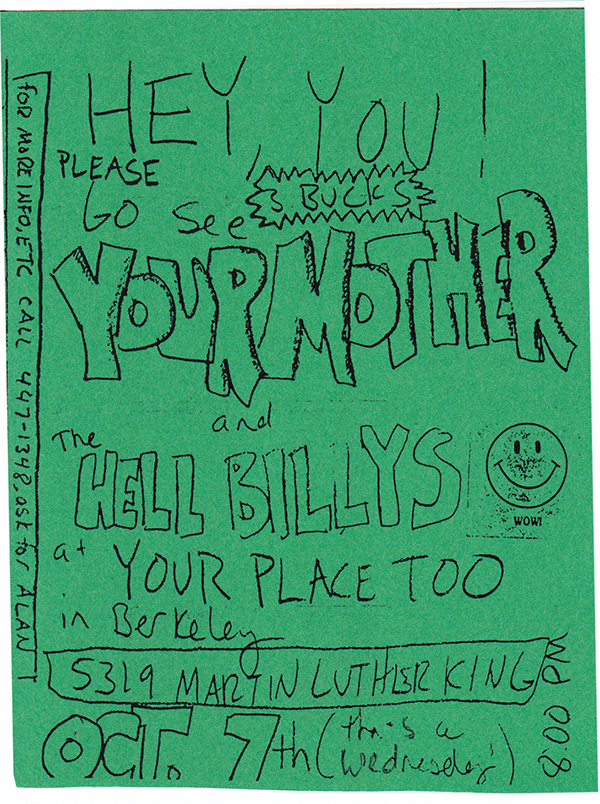 HEY, YOU!
PLEASE
GO see
3 BUCKS
YOUR MOTHER
and
The
HELL BILLYS
WOW!
at YOUR PLACE TOO
in Berkeley
5319 MARTIN LUTHER KING
8:00 PM
OCT. 7th (that's a
wednesday)
FOR MORE INFO, ETC CALL 447-1348. ask for ALAN